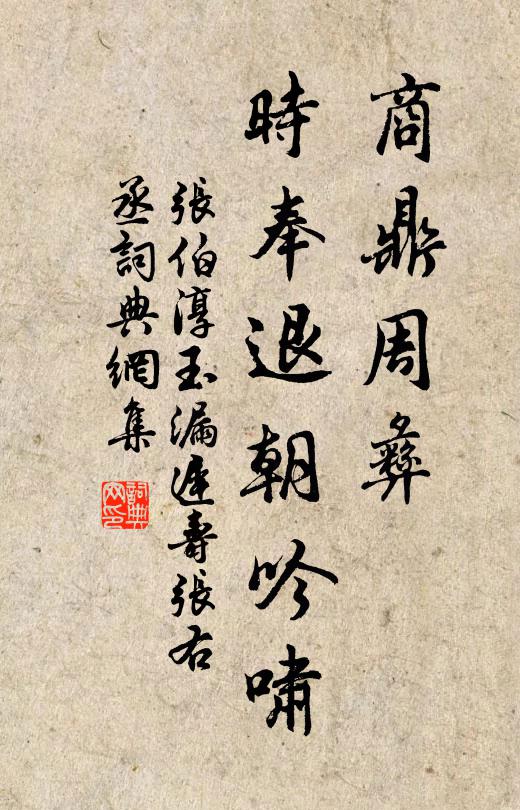 商鼎周彝
時奉退朝吟嘯
張伯淳玉漏遲壽張右
丞詞典網集
詞典
网印